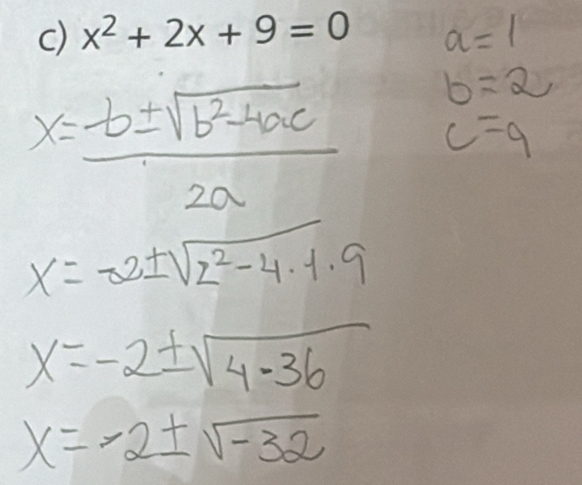 c) x² + 2x + 9 = 0
a=1
b=2
c=9
x= -b±√b²-4ac
2a
x= -2±√2²-4.1.9
x=-2±√4-36
x=-2±√-32